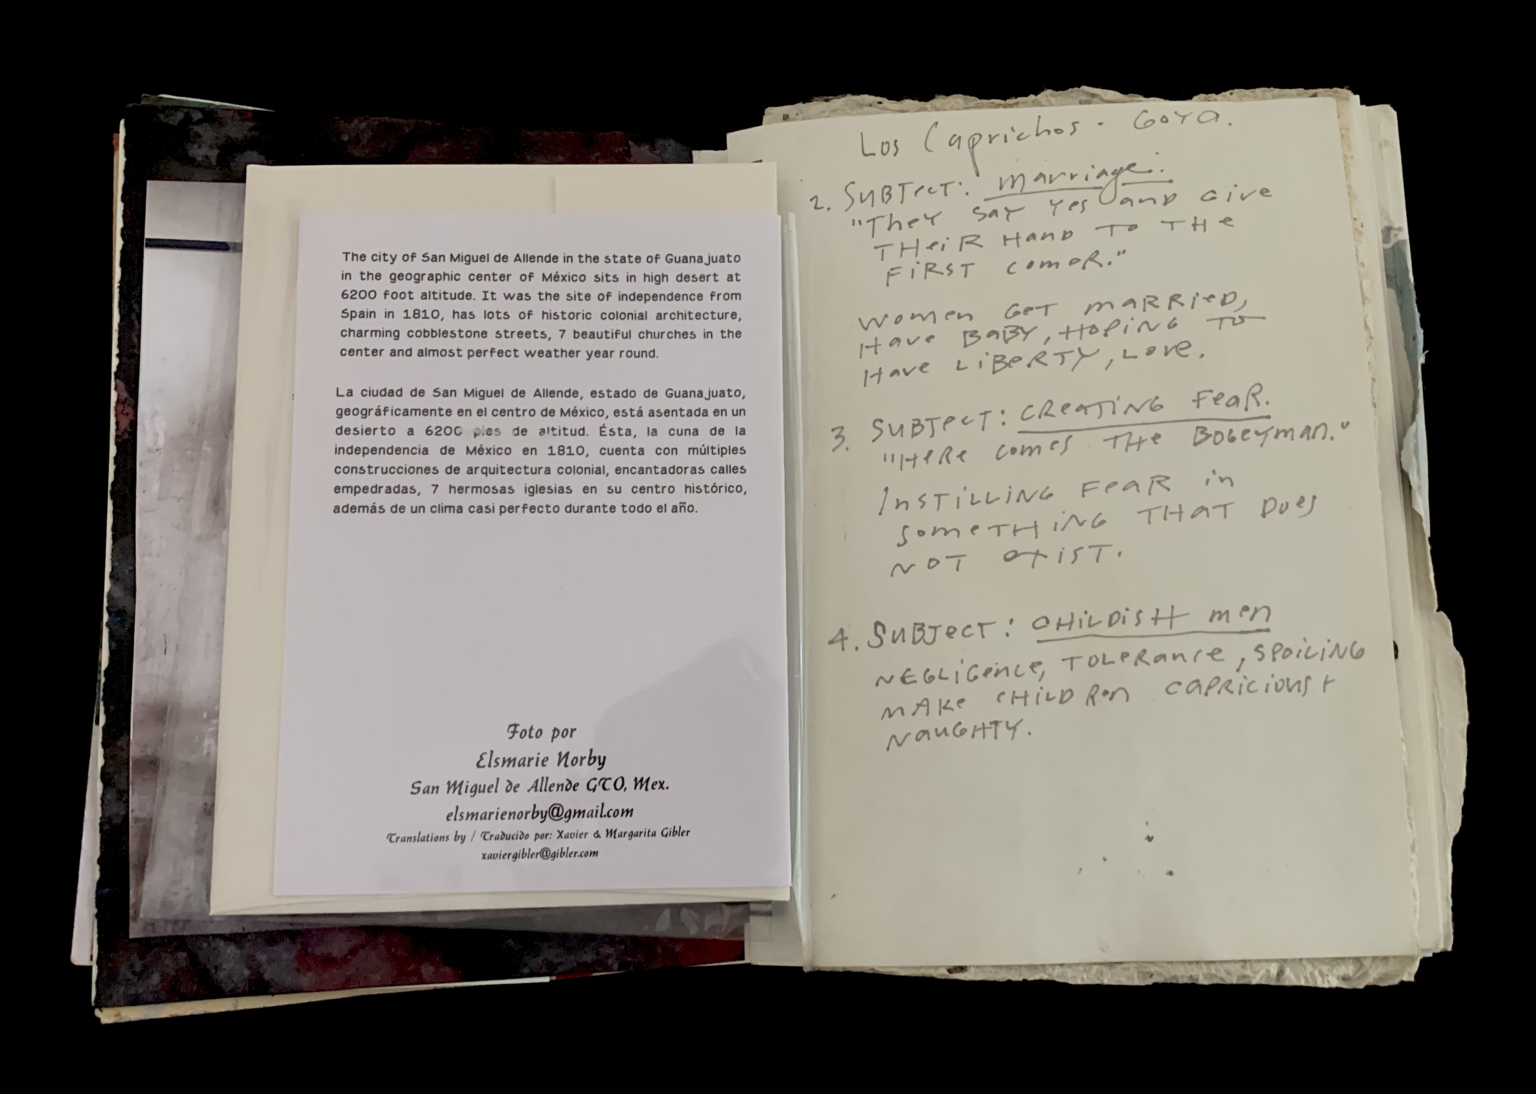 The city of San Miguel de Allende in the state of Guanajuato
in the geographic center of México sits in high desert at
6200 foot altitude. It was the site of independence from
Spain in 1810, has lots of historic colonial architecture,
charming cobblestone streets, 7 beautiful churches in the
center and almost perfect weather year round.
La ciudad de San Miguel de Allende, estado de Guanajuato,
geográficamente en el centro de México, está asentada en un
desierto a 6200 pies de altitud. Ésta, la cuna de la
independencia de México en 1810, cuenta con múltiples
construcciones de arquitectura colonial, encantadoras calles
empedradas, 7 hermosas iglesias en su centro histórico,
además de un clima casi perfecto durante todo el año.
Foto por
Elsmarie Norby
San Miguel de Allende GTO, Mex.
elsmarienorby@gmail.com
Translations by / Traducido por: Xavier & Margarita Gibler
xaviergibler@gibler.com
Los Caprichos - Goya.
2. SUBJECT: marriage.
"They SAY Yes and Give
THEIR HAND TO THE
FIRST COMER."
WOMEN GET MARRIED,
HAVE BABY, HOPING TO
HAVE LIBERTY, LOVE.
3. SUBJECT: CREATING FEAR.
"HERE COMES THE BOGEYMAN."
INSTILLING FEAR in
SOMETHING THAT DOES
NOT EXIST.
4. SUBJECT: CHILDISH men
NEGLIGENCE, TOLERANCE, SPOILING
MAKE CHILDREN CAPRICIOUS +
NAUGHTY.